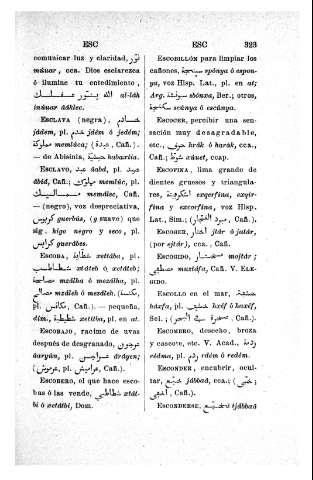 ESC
ESC
323
comunicar luz y claridad, نوّر
máuar, cca. Dios esclarezca
ó ilumine tu entedimiento,
الله ينوّر عقلك al-láh
inúuar áâklec.
ESCLAVA (negra), خادم
jádem, pl. خدم jédm ó jedém;
مملوكة memlúca; (عبدة, Cañ.).
— de Abisinia, حبشية habaxía.
ESCLAVO, عبد âabd, pl. عبيد
âbid, Cañ.; مملوك memlúc, pl.
مماليك memálec, Cañ.
— (negro), voz despreciativa,
كربوس guerbús, (g suave) que
sig. higo negro y seco, pl.
كرابس guerábes.
ESCOBA, شطابة xetába, pl.
شطاطب xtáteb ó xetáteb;
مصلحة mzálha ó mezálha, pl.
مصالح mzáleh ó mezáleh. (مكنسة,
pl. مكانس, Cañ.). — pequeña,
شطيطبة xetitba, pl. en at.
ESCOBAJO, racimo de uvas
después de desgranado, عرجون
âaryún, pl. عراجن âráyen;
(عرموش, pl. عراميش, Cañ.).
ESCOBERO, el que hace esco-
bas ó las vende, شطاطبي xtát-
bi ó xetátbi, Dom.
ESCOBILLÓN para limpiar los
cañones, spónya ó espon-
ya, voz Hisp. Lat., pl. en at;
Arg. sbónxa, Ber.; otros,
scúnya ó escúnya.
ESCOCER, percibir una sen-
sación muy desagradable,
etc., حرق hrák ó harák, cca.,
Cañ.; شوط xáuet, ccap.
ESCOFINA, lima grande de
dientes gruesos y triangula-
res, exqerfína, exqir-
fína y excorfína, voz Hisp.
Lat., Sim.; (مبرد النجّار, Cañ.).
ESCOGER, اختار jtár ó jatár,
(por ejtár), cca., Cañ.
ESCOGIDO, مختار mojtár;
مصطفى mustáfa, Cañ. V. ELE-
GIDO.
ESCOLLO en el mar, حشفة
háxfa, pl. حشيف hxéf ó haxéf,
Sel.; (صخرة في البحر, Cañ.).
ESCOMBRO, desecho, broza
y cascote, etc. V. Acad., ردمة
rédma, pl. ردم rdém ó redém.
ESCONDER, encubrir, ocul-
tar, خبّع jábbaâ, cca.; (خبّى;
اخفى, Cañ.).
ESCONDERSE, تخبّع tjábbaâ